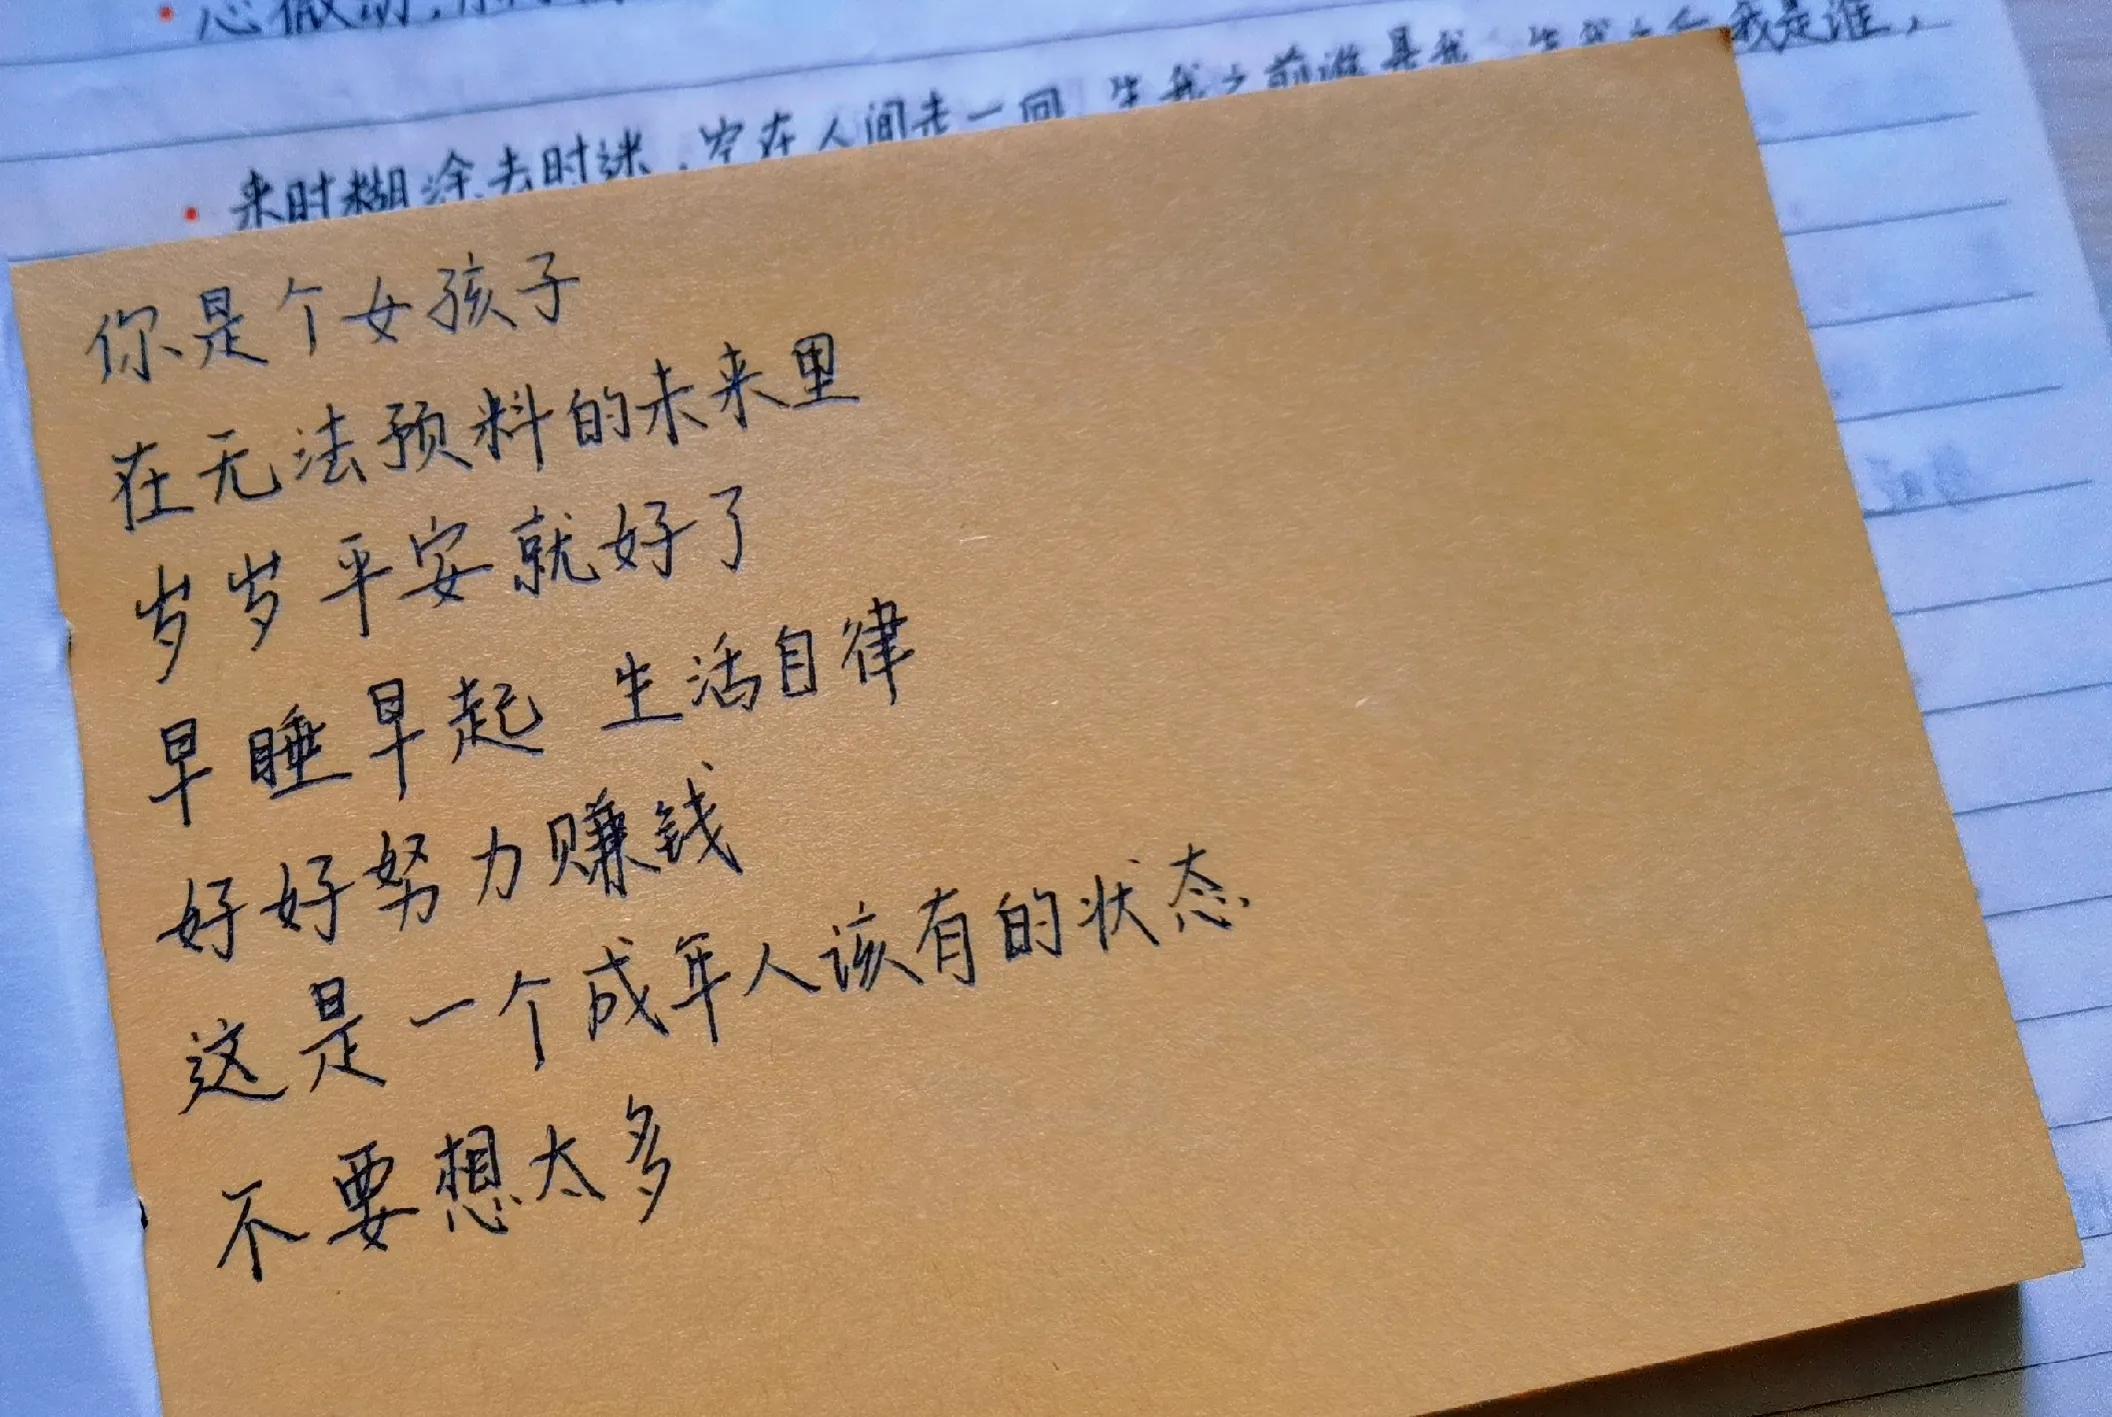 来时糊涂去时迷，空在人间走一回，生我之前谁是我，生我之后我是谁，
你是个女孩子
在无法预料的未来里
岁岁平安就好了
早睡早起 生活自律
好好努力赚钱
这是一个成年人该有的状态
不要想太多